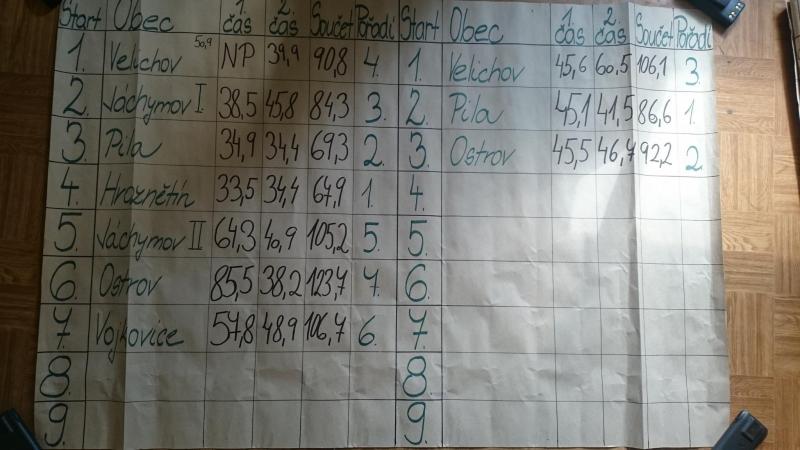 Start Obec 1. čas 2. čas Součet Pořadí Start Obec 1. čas 2. čas Součet Pořadí
1. Velichov 50,9 NP 39,9 90,8 4. 1. Velichov 45,6 60,5 106,1 3
2. Jáchymov I 38,5 45,8 84,3 3. 2. Pila 45,1 41,5 86,6 1.
3. Pila 34,9 34,4 69,3 2. 3. Ostrov 45,5 46,7 92,2 2.
4. Hroznětín 33,5 34,4 67,9 1. 4.
5. Jáchymov II 64,3 40,9 105,2 5. 5.
6. Ostrov 85,5 38,2 123,7 7. 6.
7. Vojkovice 57,8 48,9 106,7 6. 7.
8. 8.
9. 9.